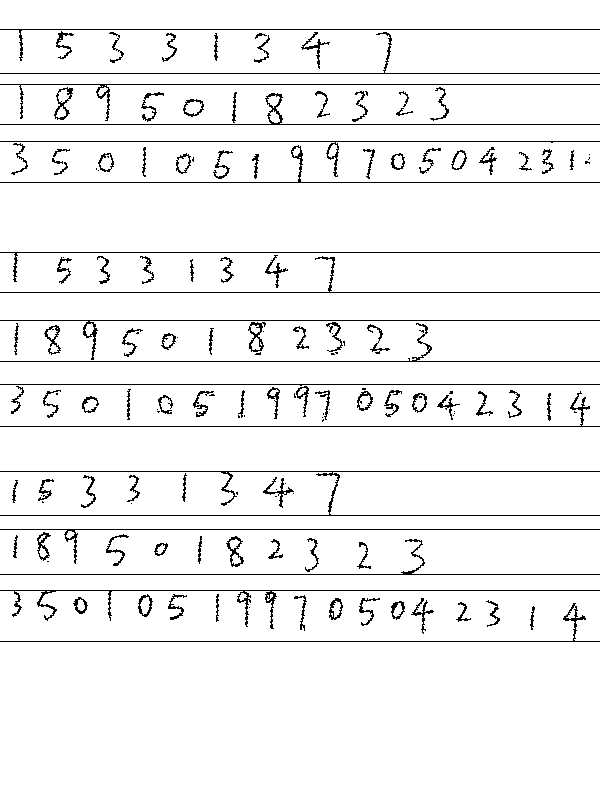 15331347
18950182323
35010519970504231
15331347
18950182323
350105199705042314
15331347
18950182323
350105199705042314